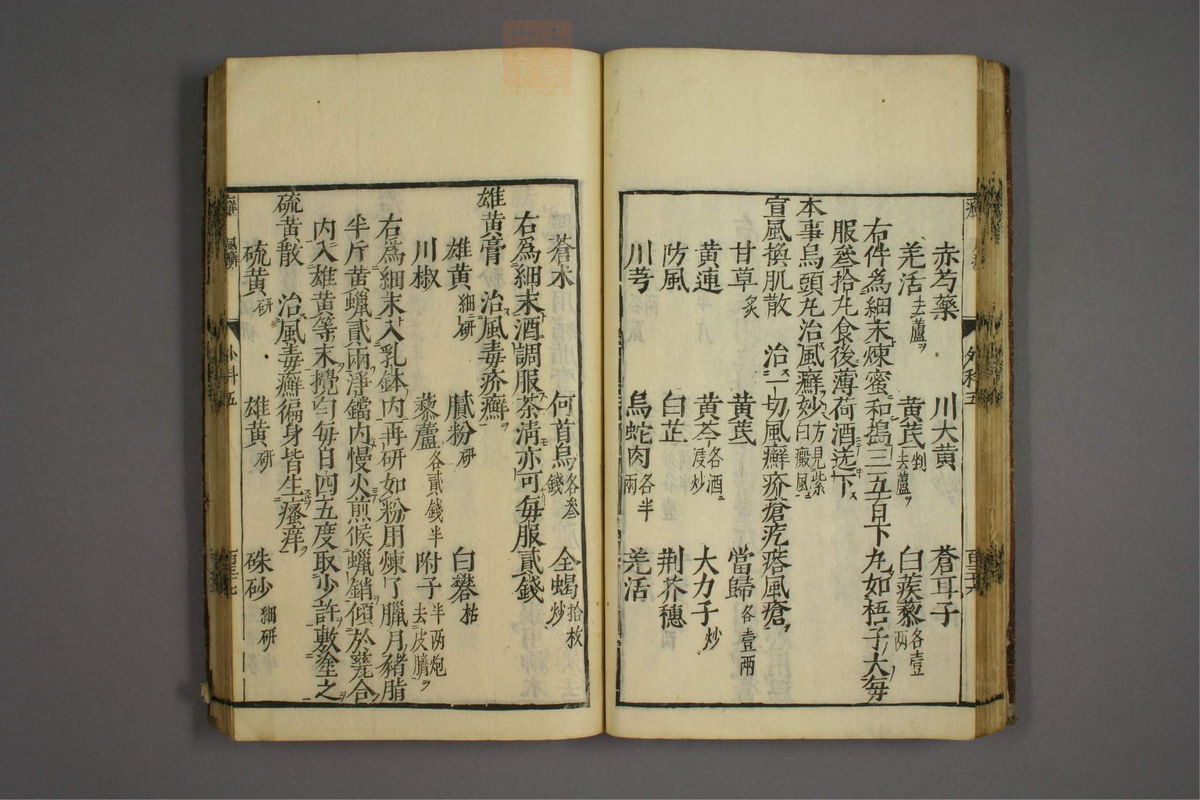 赤芍藥 川大黃 蒼耳子
羌活去蘆 黃茋剉去蘆 白蒺藜各壹兩
右件爲細末煉蜜和搗三五百下丸如梧子大每
服叄拾丸食後薄荷酒送下
本事烏頭丸治風癬妙方見紫白癜風
宣風換肌散 治一切風癬疥瘡疙瘩風瘡
甘草炙 黃茋 當歸各壹兩
黃連 黃芩各酒浸炒 大力子炒
防風 白芷 荆芥穗
川芎 烏蛇肉各半兩 羌活
蒼朮 何首烏各叄錢 全蝎拾枚炒
右爲細末酒調服茶淸亦可每服貳錢
雄黃膏 治風毒疥癬
雄黃細研 膩粉研 白礬枯
川椒 藜蘆各貳錢半 附子半两炮去皮臍
右爲細末入乳鉢内再研如粉用煉了臘月豬脂
半斤黃蠟貳兩淨鐺内慢火煎候蠟銷傾於甆合
内入雄黃等末攪勻每日四五度取少許敷塗之
硫黃散 治風毒癬徧身皆生瘙痒
硫黃研 雄黃研 硃砂細研
癬 風癬 外科五